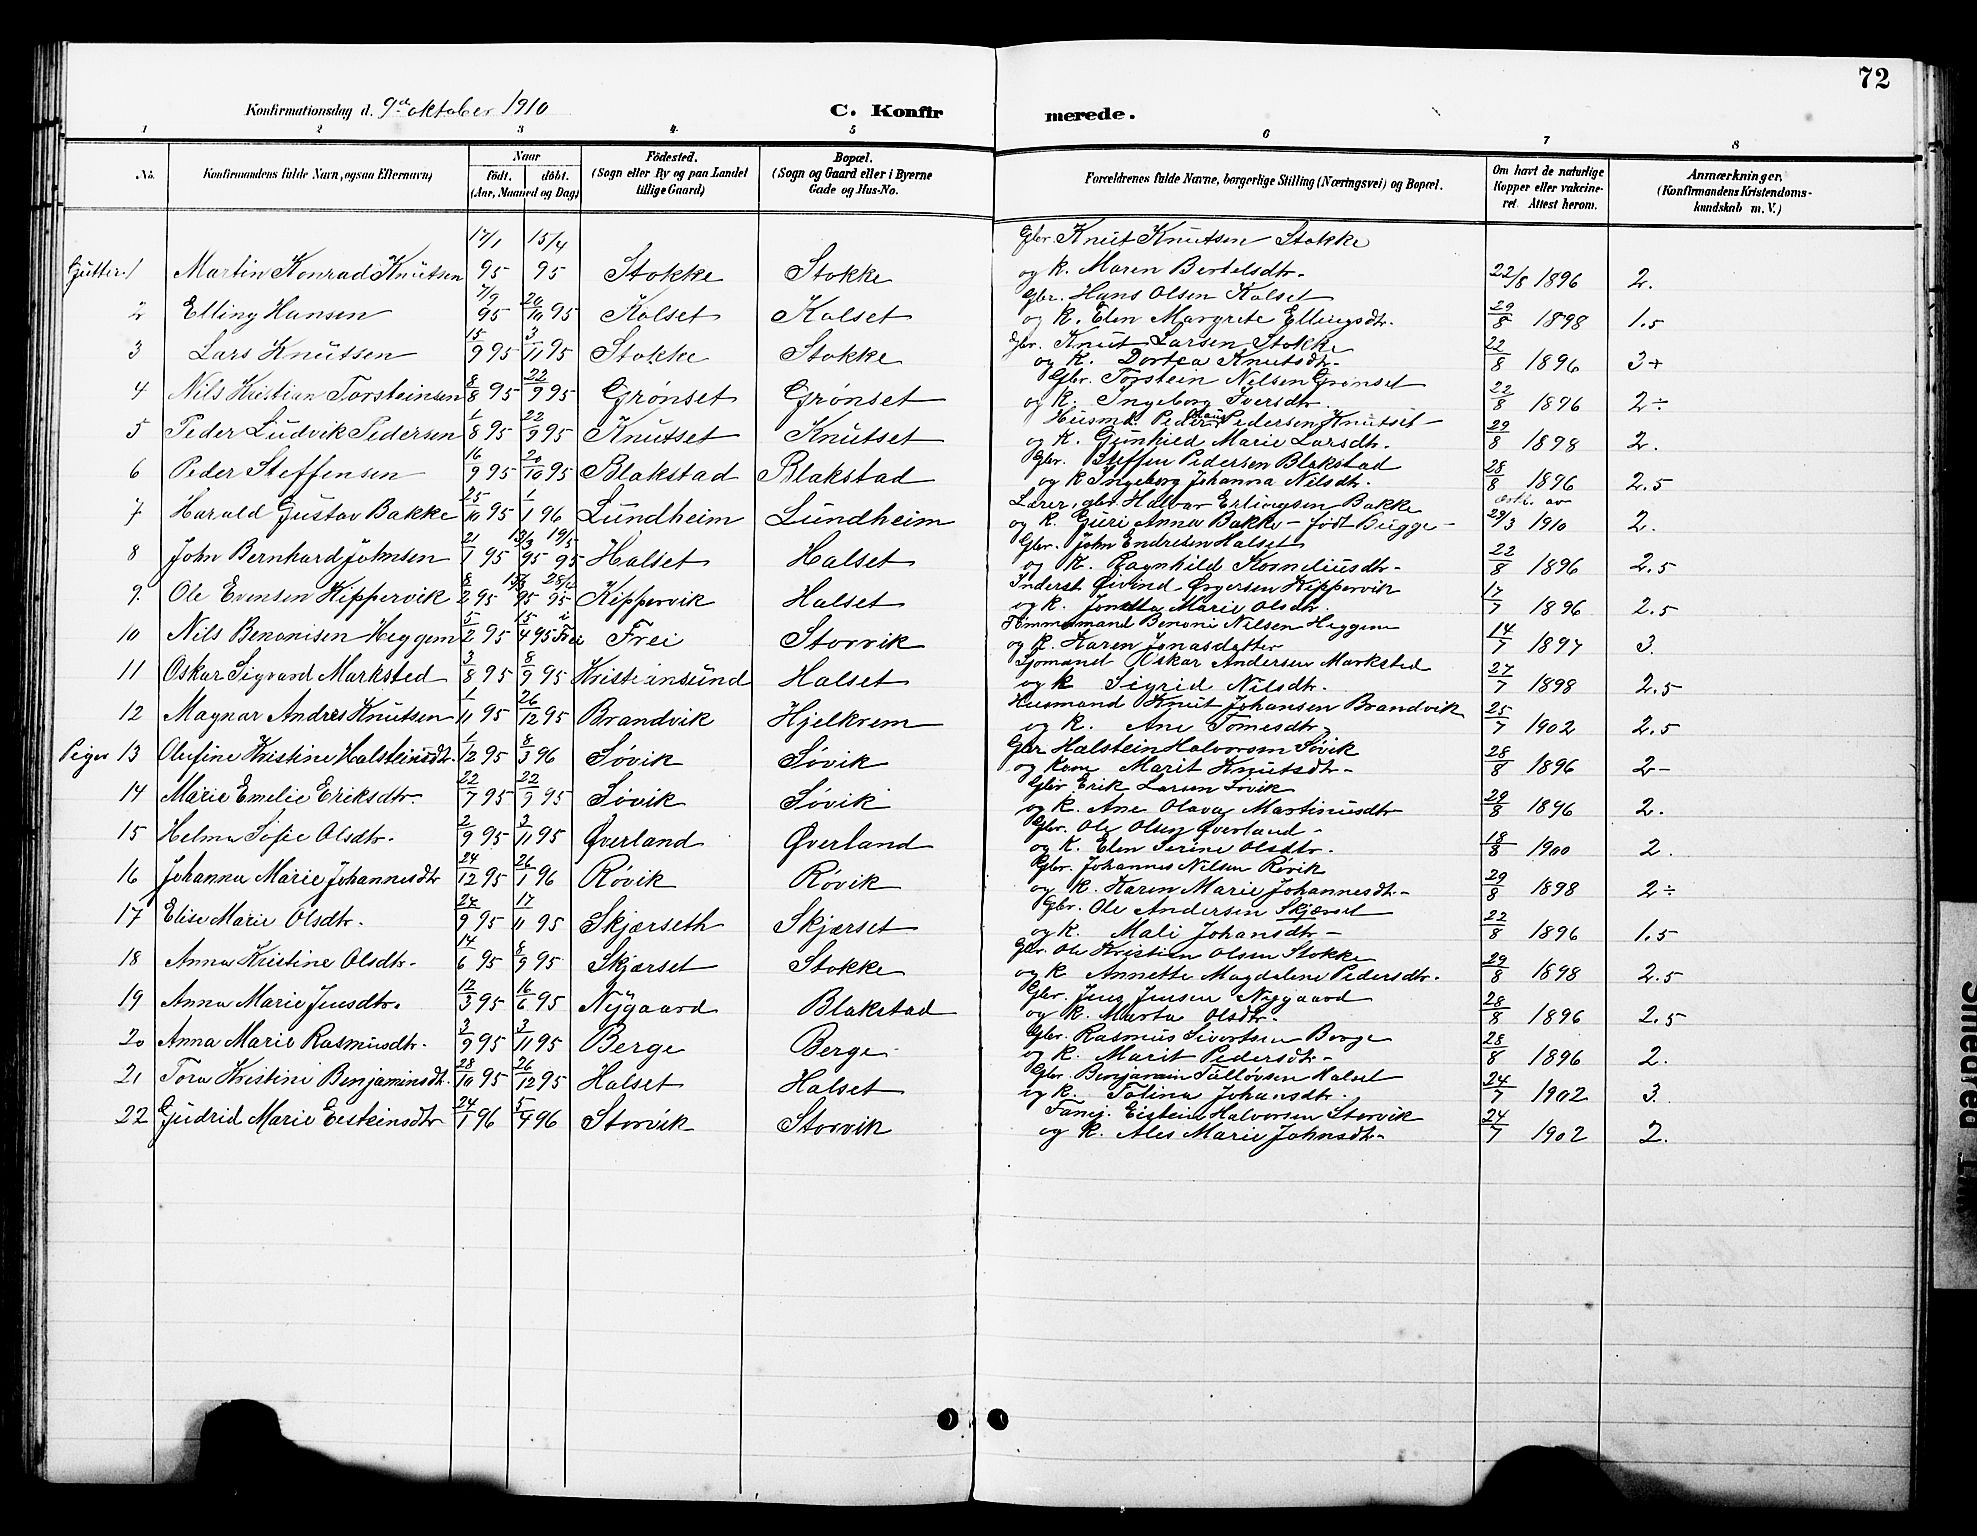 72
Konfirmationsdag d. 9de oktober 1910 C. Konfirmerede.
1 2 3 4 5 6 7 8
No. Konfirmandens fulde Navn, ogsaa Efternavn) Naar født. døbt. (Aar, Maaned og Dag) Fødested. (Sogn eller By og paa Landet tillige Gaard) Bopæl. (Sogn og Gaard eller i Byerne Gade og Hus-No. Forældrenes fulde Navne, borgerlige Stilling (Næringsvei) og Bopæl. Om havt de naturlige Kopper eller vakcineret. Attest herom. Anmærkninger. (Konfirmandens Kristendomskundskab m. V.)
Gutter. 1 Martin Konrad Knutsen 17/1 95 15/4 95 Stokke Stokke Gbr. Knut Knutsen Stokke
og k. Maren Bertelsdtr. 22/8 1896 2.
2 Elling Hansen 7/9 95 20/10 95 Kolset Kolset Gbr. Hans Olsen Kolset
og k. Elen Margrete Ellingsdtr. 29/8 1898 1.5
3 Lars Knutsen 15/9 95 3/11 95 Stokke Stokke Gbr. Knut Larsen Stokke
og k. Dortea Knutsdtr. 22/8 1896 3+
4 Nils Kristian Torsteinsen 8/8 95 22/9 95 Grønset Grønset Gbr. Torstein Nilsen Grønset
og k. Ingeborg Iversdtr. 22/8 1896 2÷
5 Peder Ludvik Pedersen 1/8 95 22/9 95 Knutset Knutset Husmd. Peder Pedersen Knutset
og k. Gunhild Marie Larsdtr. 29/8 1898 2.
6 Peder Steffensen 16/9 95 20/10 95 Blakstad Blakstad Gbr. Steffen Pedersen Blakstad
og k Ingeborg Johanna Nilsdtr. 28/8 1896 2.5
7 Harald Gustav Bakke 25/10 95 1/1 96 Lundheim Lundheim Lærer, gbr. Halvar Erlingsen Bakke
og k. Guri Anna Bakke - født Bugge - att. av 29/3 1910 2.
8 John Bernhard Johnsen 21/1 95 13/3 95 19/5 95 Halset Halset Gbr. John Endresen Halset
og k. Ragnhild Korneliusdtr. 22/8 1896 2.5
9. Ole Evensen Kippervik 8/2 95 95 95 Kippervik Halset Inderst Øivind Ørgersen Kippervik
og k. Jonetta Marie Olsdtr. 17/7 1896 2.5
10 Nils Benonisen Heggem 5/2 95 15/4 95 i Frei Frei Storvik Tømmermand Benoni Nilsen Heggem
og k. Karen Jonasdatter 14/7 1897 3.
11 Oskar Sigvard Marksted 3/8 95 8/9 95 Kristiansund Halset Sjømand Oskar Andersen Marksted
og k Sigrid Nilsdtr. 27/7 1898 2.5
12 Magnar Andres Knutsen 1/11 95 26/12 95 Brandvik Hjelkrem Husmand Knut Johansen Brandvik
og k. Ane Tomesdtr. 25/7 1902 2.5
Piger 13 Olufine Kristine Halsteinsdtr. 1/12 95 8/3 96 Søvik Søvik Gbr Halstein Halvorsen Søvik
og kone Marit Knutsdtr. 28/8 1896 2-
14 Marie Emelie Eriksdtr. 22/7 95 22/9 95 Søvik Søvik Gbr Erik Larsen Søvik
og k. Ane Olava Martinusdtr 29/8 1896 2.
15 Helma Sofie Olsdtr. 2/9 95 3/11 95 Øverland Øverland Gbr. Ole Olsen Øverland
og k. Elen Serine Olsdtr. 18/8 1900 2.
16 Johanna Marie Johannesdtr 24/12 95 26/1 96 Røvik Røvik Gbr. Johannes Nilsen Røvik
og k. Karen Marie Johannesdtr. 29/8 1898 2÷
17 Elise Marie Olsdtr. 24/9 95 17/11 95 Skjærseth Skjærset Gbr. Ole Andersen Skjærset
og k. Mali Johansdtr 22/8 1896 1.5
18 Anna Kristine Olsdtr. 14/6 95 8/9 95 Skjærset Stokke Gbr. Ole Kristian Olsen Stokke
og k Annette Magdalene Pedersdtr. 29/8 1898 2.5
19 Anna Marie Jensdtr. 12/3 95 16/6 95 Nygaard Blakstad Gbr. Jens Jensen Nygaard
og k. Marta Olsdtr. 28/8 1896 2.5
20 Anna Marie Rasmusdtr. 3/9 95 3/11 95 Berge Berge Gbr. Rasmus Sivertsen Berge
og k. Marit Pedersdtr. 28/8 1896 2.
21 Tora Kristine Benjaminsdt. 28/10 95 26/12 95 Halset Halset Gbr. Benjamin Talløvsen Halset
og k. Talina Johansdtr. 24/7 1902 3.
22 Gudrid Marie Eisteinsdtr 24/1 96 5/4 96 Storvik Storvik Eistein Halvorsen Storvik
og k. Ales Marie Johnsdtr. 24/7 1902 2.